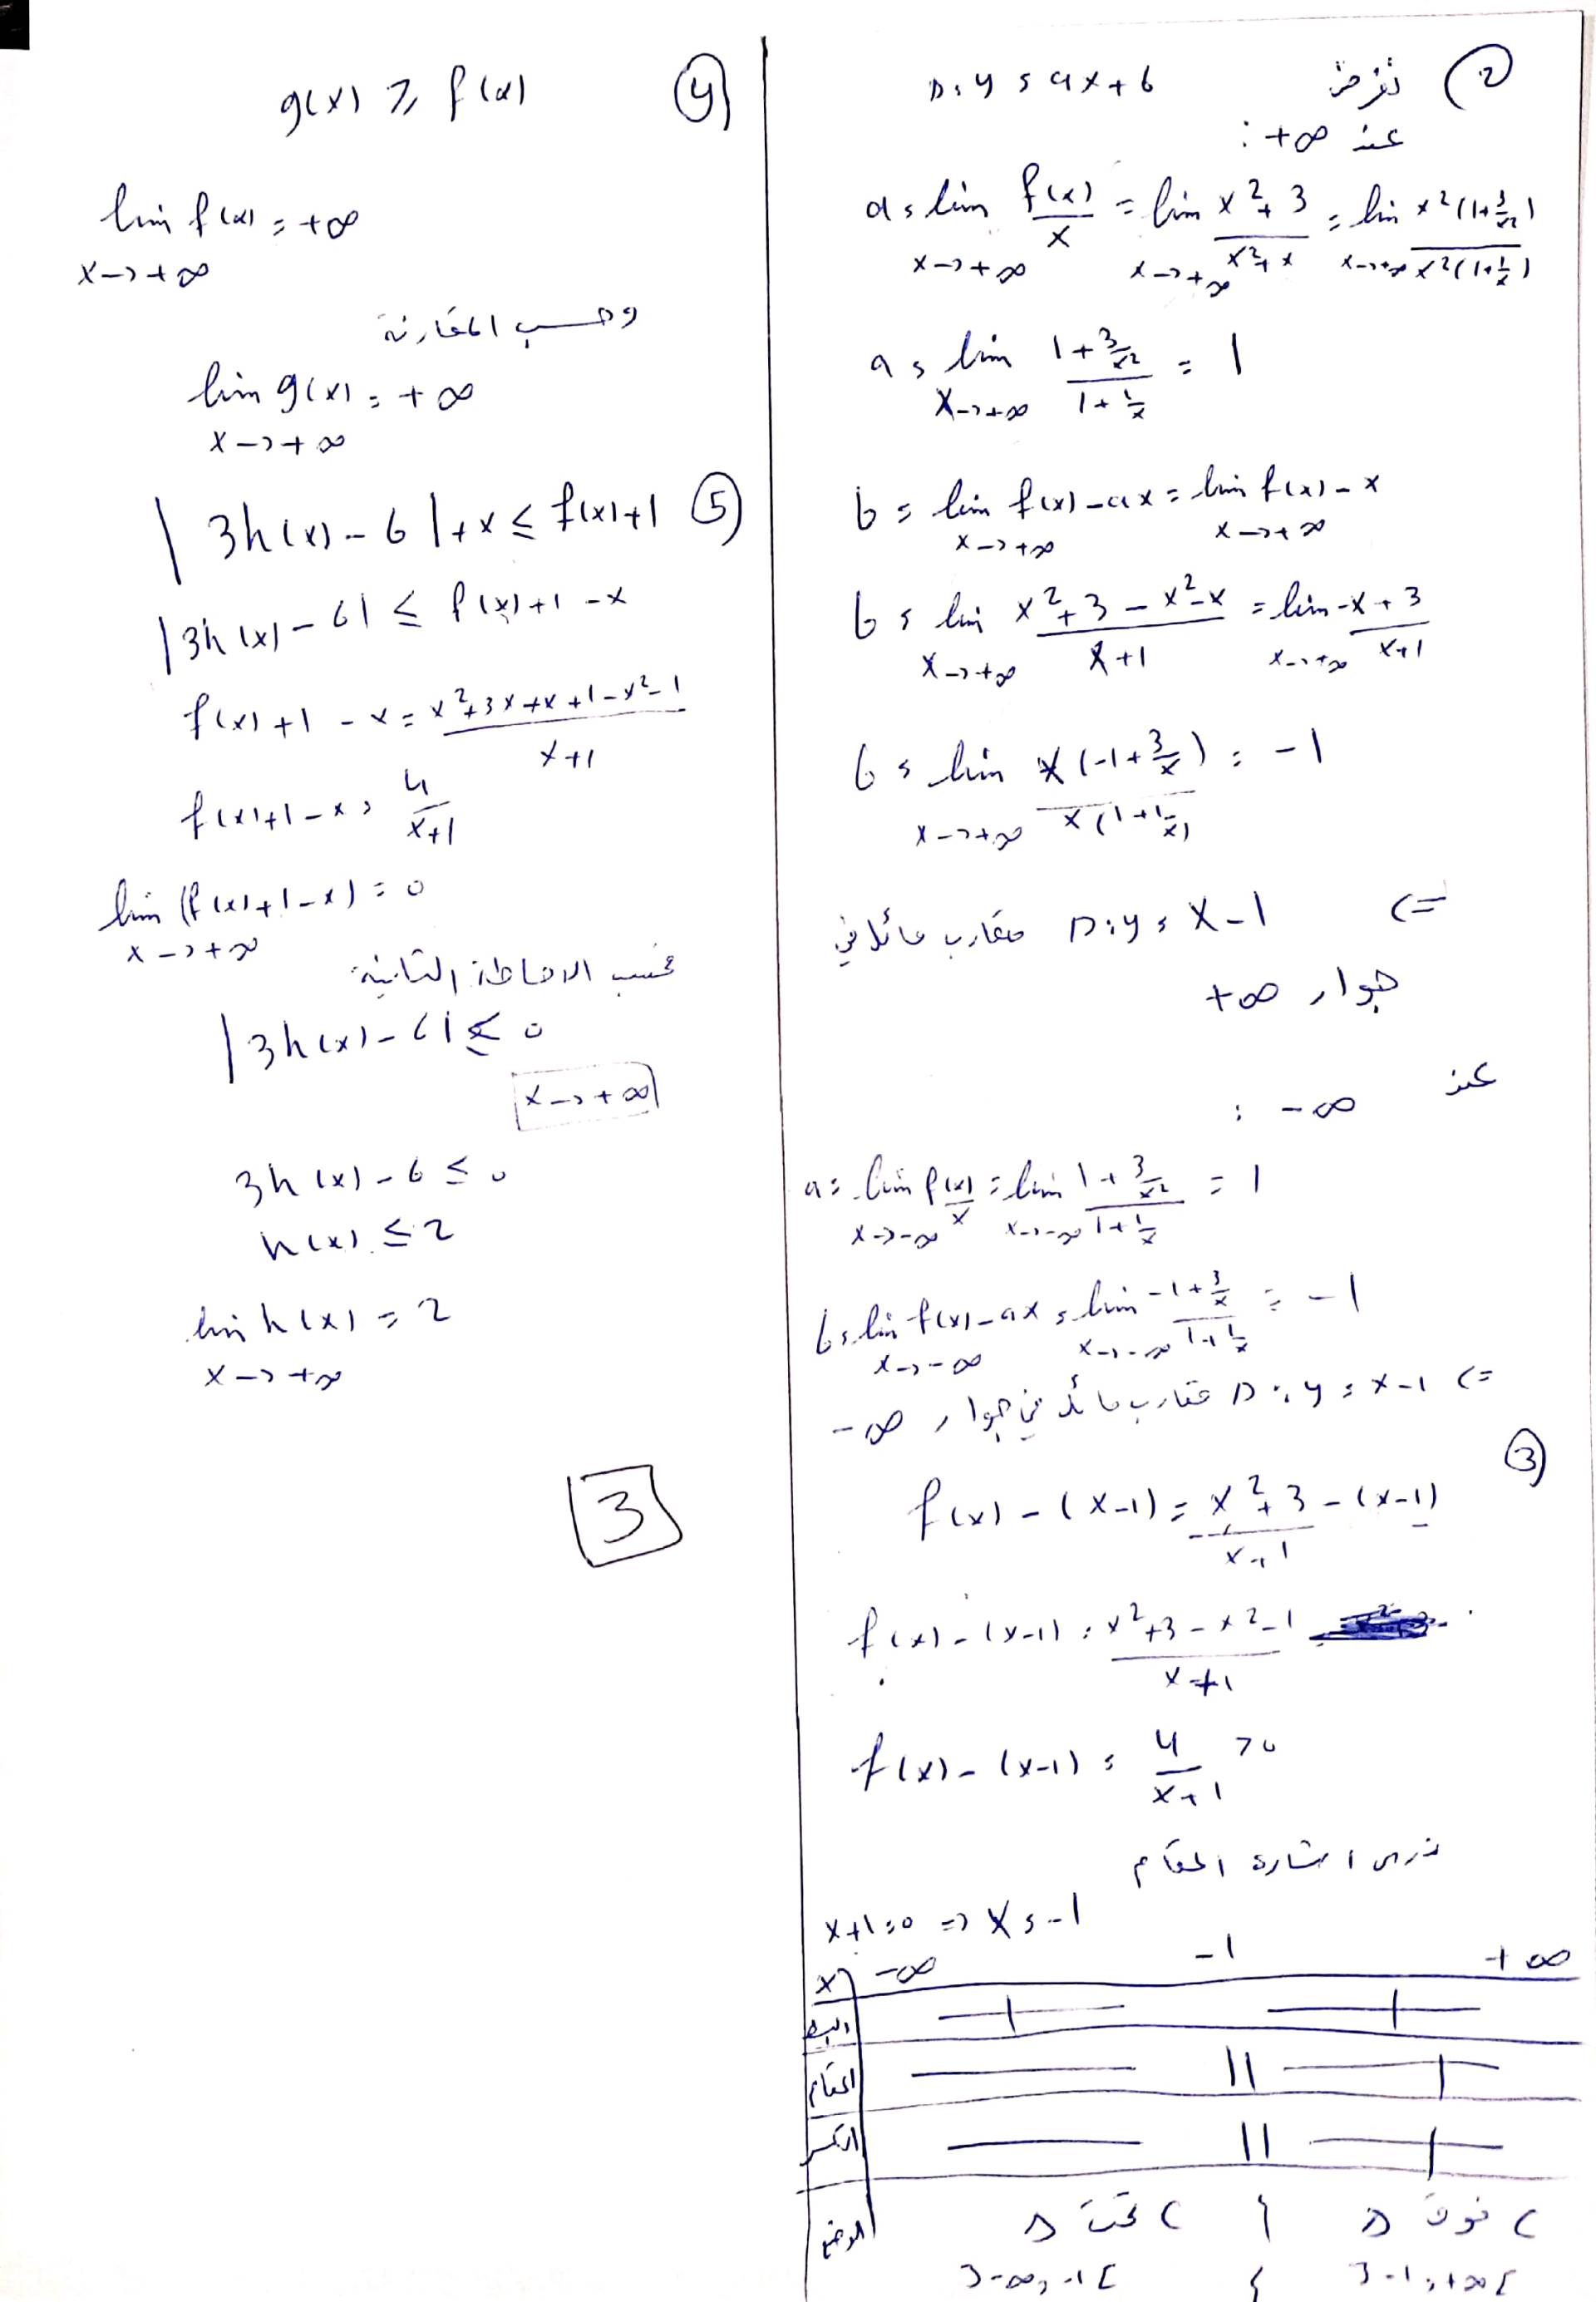 ② نفرض D: y = ax+b
عند +∞ :
a = lim f(x)/x = lim x²+3/x²+x = lim x²(1+3/x²)/x²(1+1/x)
x→+∞ x→+∞ x→+∞
a = lim 1+3/x²/1+1/x = 1
x→+∞
b = lim f(x)-ax = lim f(x)-x
x→+∞ x→+∞
b = lim x²+3-x²-x/x+1 = lim -x+3/x+1
x→+∞ x→+∞
b = lim x(-1+3/x)/x(1+1/x) = -1
x→+∞
<= D: y = x-1 مقارب مائل في
جوار +∞
عند
-∞ :
a = lim f(x)/x = lim 1+3/x²/1+1/x = 1
x→-∞ x→-∞
b = lim f(x)-ax = lim -1+3/x/1+1/x = -1
x→-∞ x→-∞
<= D: y = x-1 مقارب مائل في جوار -∞
③
f(x) - (x-1) = x²+3/x+1 - (x-1)
f(x) - (x-1) = x²+3-x²-1/x+1
f(x) - (x-1) = 4/x+1 >0
ندرس اشارة المقام
x+1=0 => x = -1
x -∞ -1 +∞
البسط + +
المقام - || +
الكسر - || +
الوضع C تحت D } C فوق D
]-∞, -1[ } ]-1, +∞[
④ g(x) ≥ f(x)
lim f(x) = +∞
x→+∞
وحسب المقارنة
lim g(x) = +∞
x→+∞
⑤ |3h(x)-6|+x ≤ f(x)+1
|3h(x)-6| ≤ f(x)+1-x
f(x)+1-x = x²+3x+x+1-x²-1/x+1
f(x)+1-x = 4/x+1
lim (f(x)+1-x) = 0
x→+∞
حسب الاحاطة الثانية
|3h(x)-6| ≤ 0
x→+∞
3h(x)-6 ≤ 0
h(x) ≤ 2
lim h(x) = 2
x→+∞
3